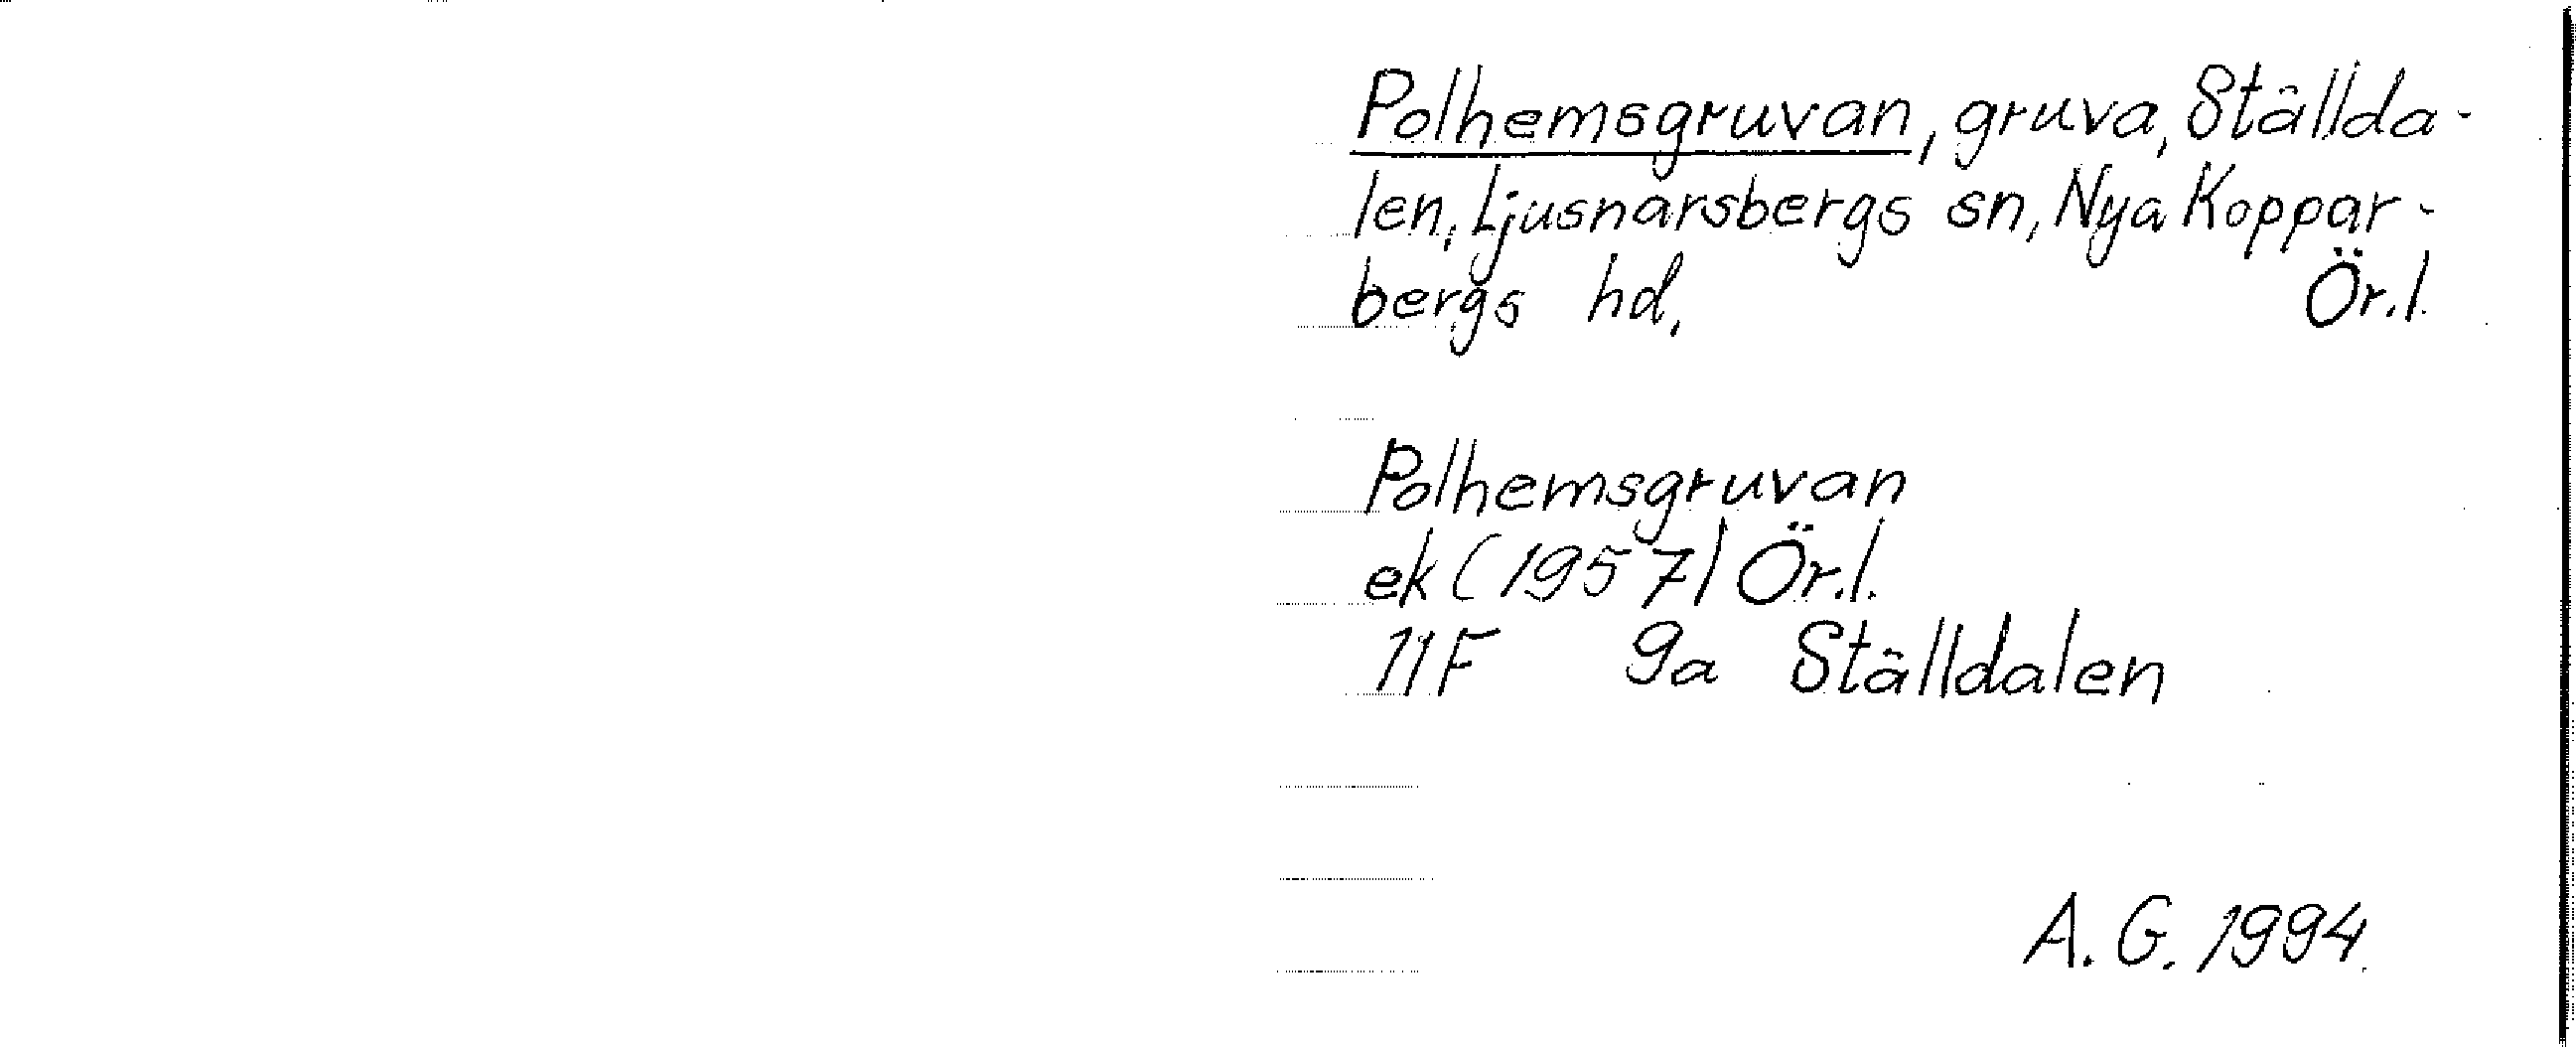 Polhemsgruvan, gruva, Ställda-
len, Ljusnarsbergs sn, Nya Koppar-
bergs hd, Ör.l.
Polhemsgruvan
ek (1957) Ör.l.
11F 9a Ställdalen
A. G. 1994.